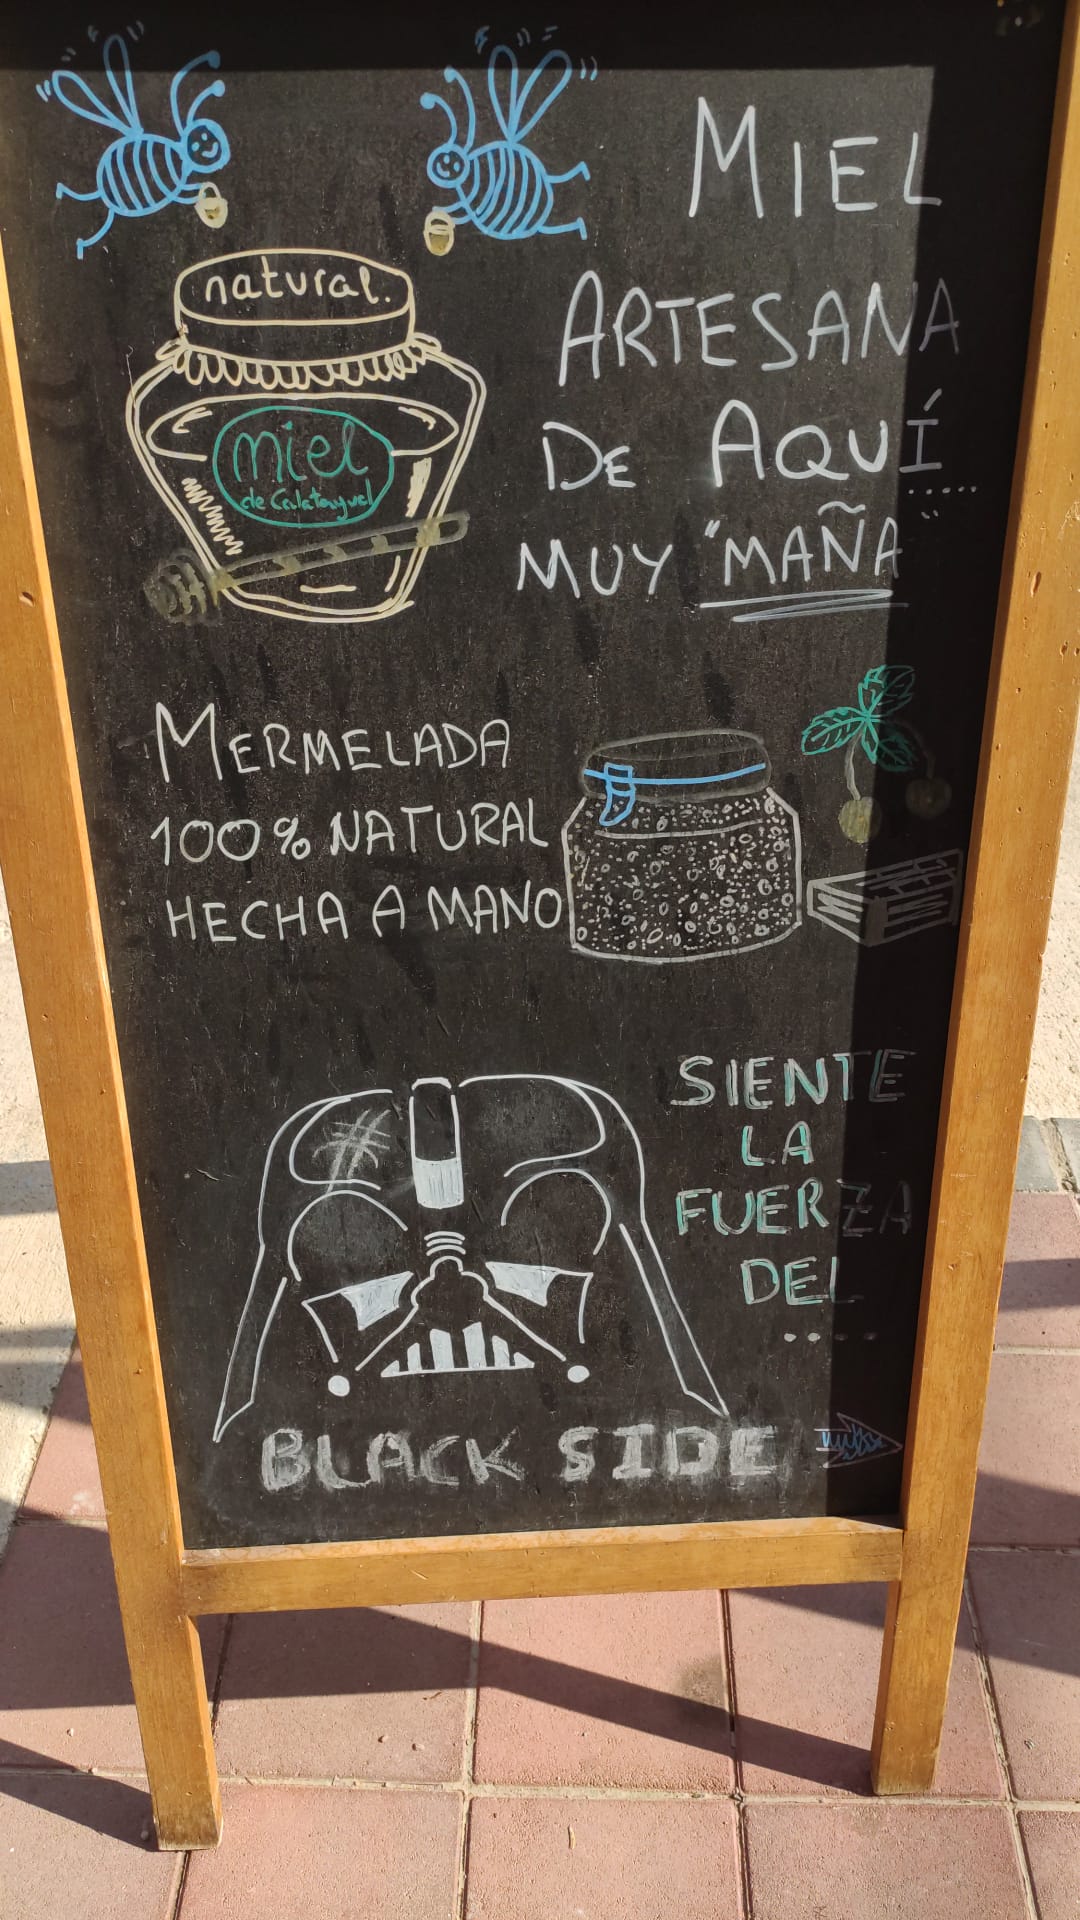 natural.
miel
de Calatayud
MIEL
ARTESANA
DE AQUÍ.....
MUY "MAÑA"
MERMELADA
100% NATURAL
HECHA A MANO
SIENTE
LA
FUERZA
DEL
.....
BLACK SIDE